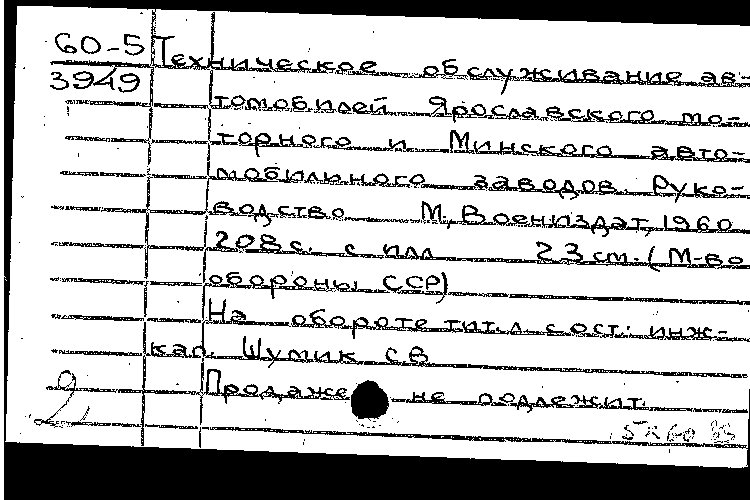 60-5 Техническое обслуживание ав-
3949
томобилей Ярославского мо-
торного и Минского авто-
мобильного заводов. Руко-
водство М, Воениздат, 1960
208 с. с илл 23 см. (М-во
обороны ССР)
На обороте тит. л. сост.: инж-
кап. Шумик С В
Продаже не подлежит.
2